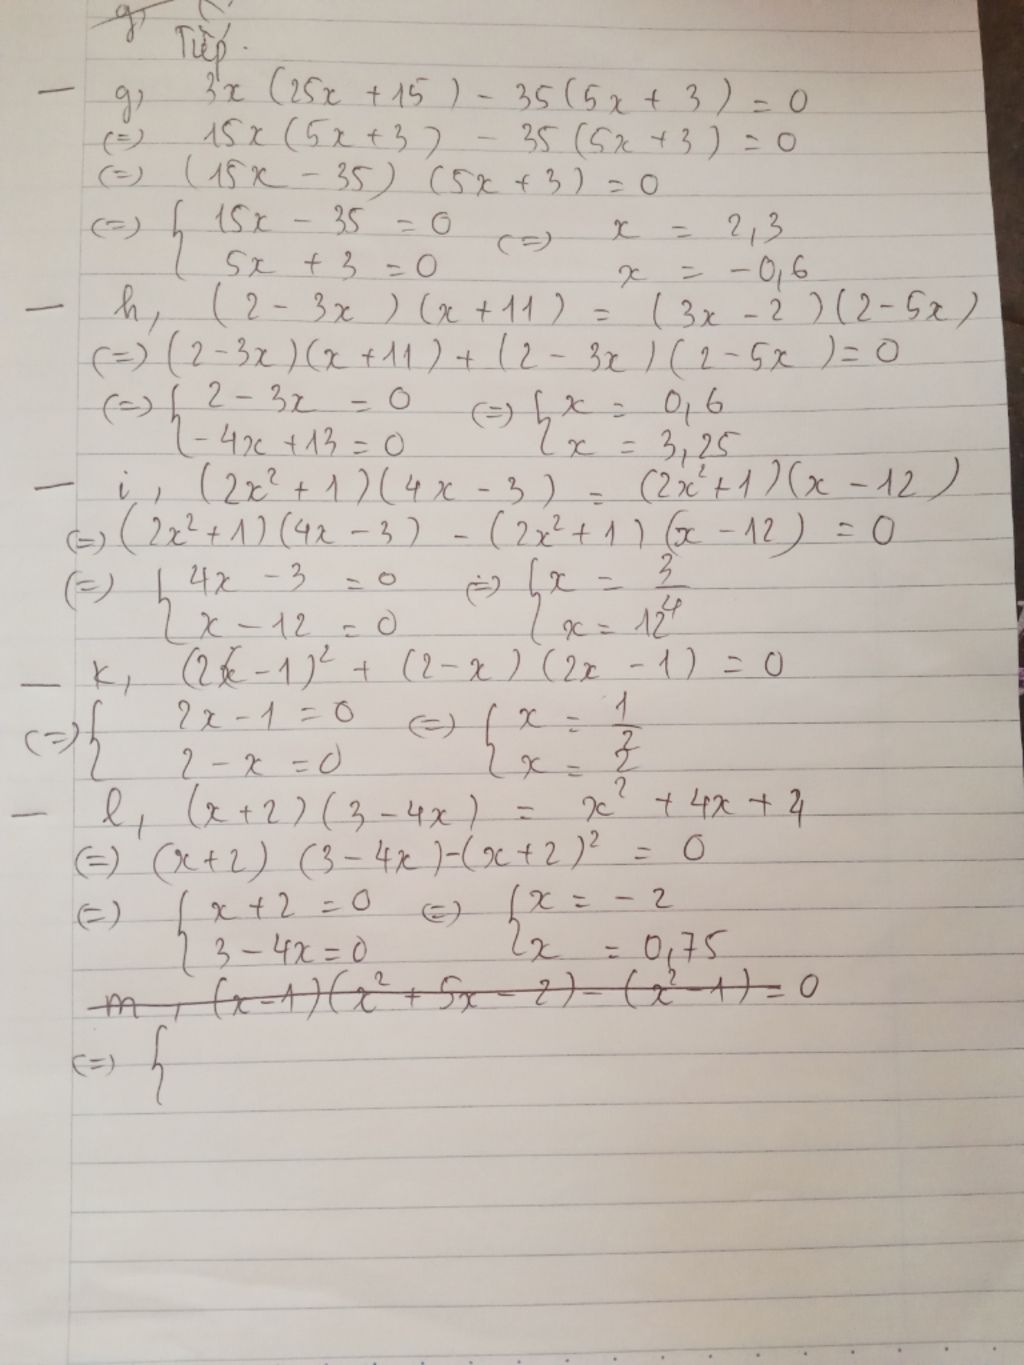 g,
Tiếp.
- g, 3x (25x + 15) - 35(5x + 3) = 0
(=) 15x(5x+3) - 35(5x+3) = 0
(=) (15x - 35) (5x+3) = 0
(=) { 15x - 35 = 0 (=) x = 2,3
5x + 3 = 0 x = -0,6
- h, (2 - 3x)(x + 11) = (3x - 2)(2 - 5x)
(=) (2-3x)(x+11) + (2-3x)(2-5x) = 0
(=) { 2 - 3x = 0 (=) { x = 0,6
-4x + 13 = 0 x = 3,25
- i, (2x² + 1)(4x - 3) = (2x²+1)(x - 12)
(=) (2x²+1)(4x-3) - (2x²+1)(x-12) = 0
(=) { 4x - 3 = 0 (=) { x = 3/4
x - 12 = 0 x = 12
- k, (2x-1)² + (2-x)(2x-1) = 0
(=) { 2x-1 = 0 (=) { x = 1/2
2 - x = 0 x = 2
- l, (x+2)(3-4x) = x² + 4x + 4
(=) (x+2) (3-4x)-(x+2)² = 0
(=) { x+2 = 0 (=) { x = -2
3-4x = 0 x = 0,75
m, (x-1)(x² + 5x - 2) - (x²-1) = 0
(=) {